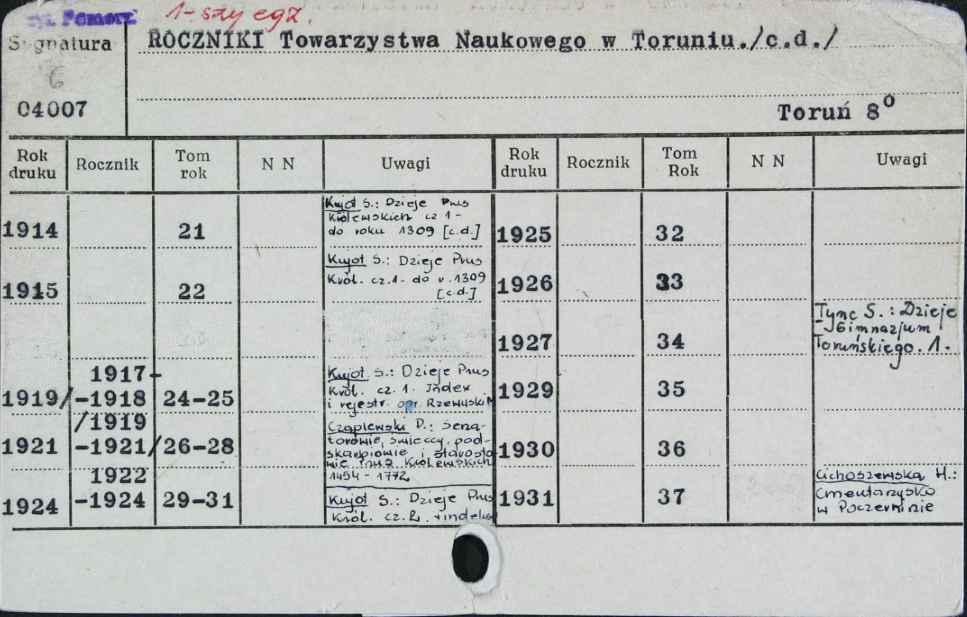 Pomorz.
1-szy egz.
Sygnatura
ROCZNIKI Towarzystwa Naukowego w Toruniu./c.d./
6
04007
Toruń 8°
Rok druku Rocznik Tom rok N N Uwagi
Rok druku Rocznik Tom Rok N N Uwagi
1914 21
Kujot S.: Dzieje Prus
Królewskich cz 1-
do roku 1309 [c.d.]
1915 22
Kujot S.: Dzieje Prus
Król. cz.1- do r. 1309
[c.d.]
1917-
1919/-1918 24-25
Kujot S.: Dzieje Prus
Król. cz. 1. Index
i rejestr. opr.
/1919
1921 -1921/26-28
Czaplewski P.: Sena-
torowie, świeccy, pod-
skarbiowie i starosto-
wie Prus Królewskich
1454-1772
1922
1924 -1924 29-31
Kujot S.: Dzieje Prus
Król. cz. 2.
1925 32
1926 33
1927 34
Tync S.: Dzieje
Gimnazjum
Toruńskiego. 1.
1929 35
1930 36
1931 37
Cichoszewska H.:
Cmentarzysko
w